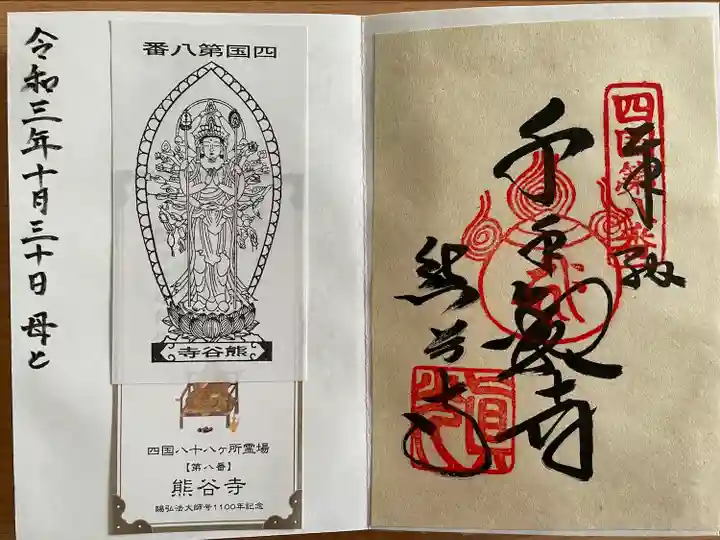 四国第八番
奉納
千手
熊谷寺
四国第八番
熊谷寺
四国八十八ヶ所霊場
【第八番】
熊谷寺
賜弘法大師号1100年記念
令和三年十月三十日 母と